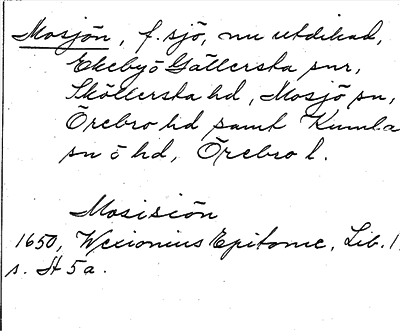 Mosjön, f. sjö, nu utdikad,
Ekebyö Gällersta snr,
Sköllersta hd, Mosjö sn,
Örebro hd samt Kumla
sn o hd, Örebro l.
Mosisiön
1650, Wexionius Epitome, Lib. 1,
s. H 5 a.